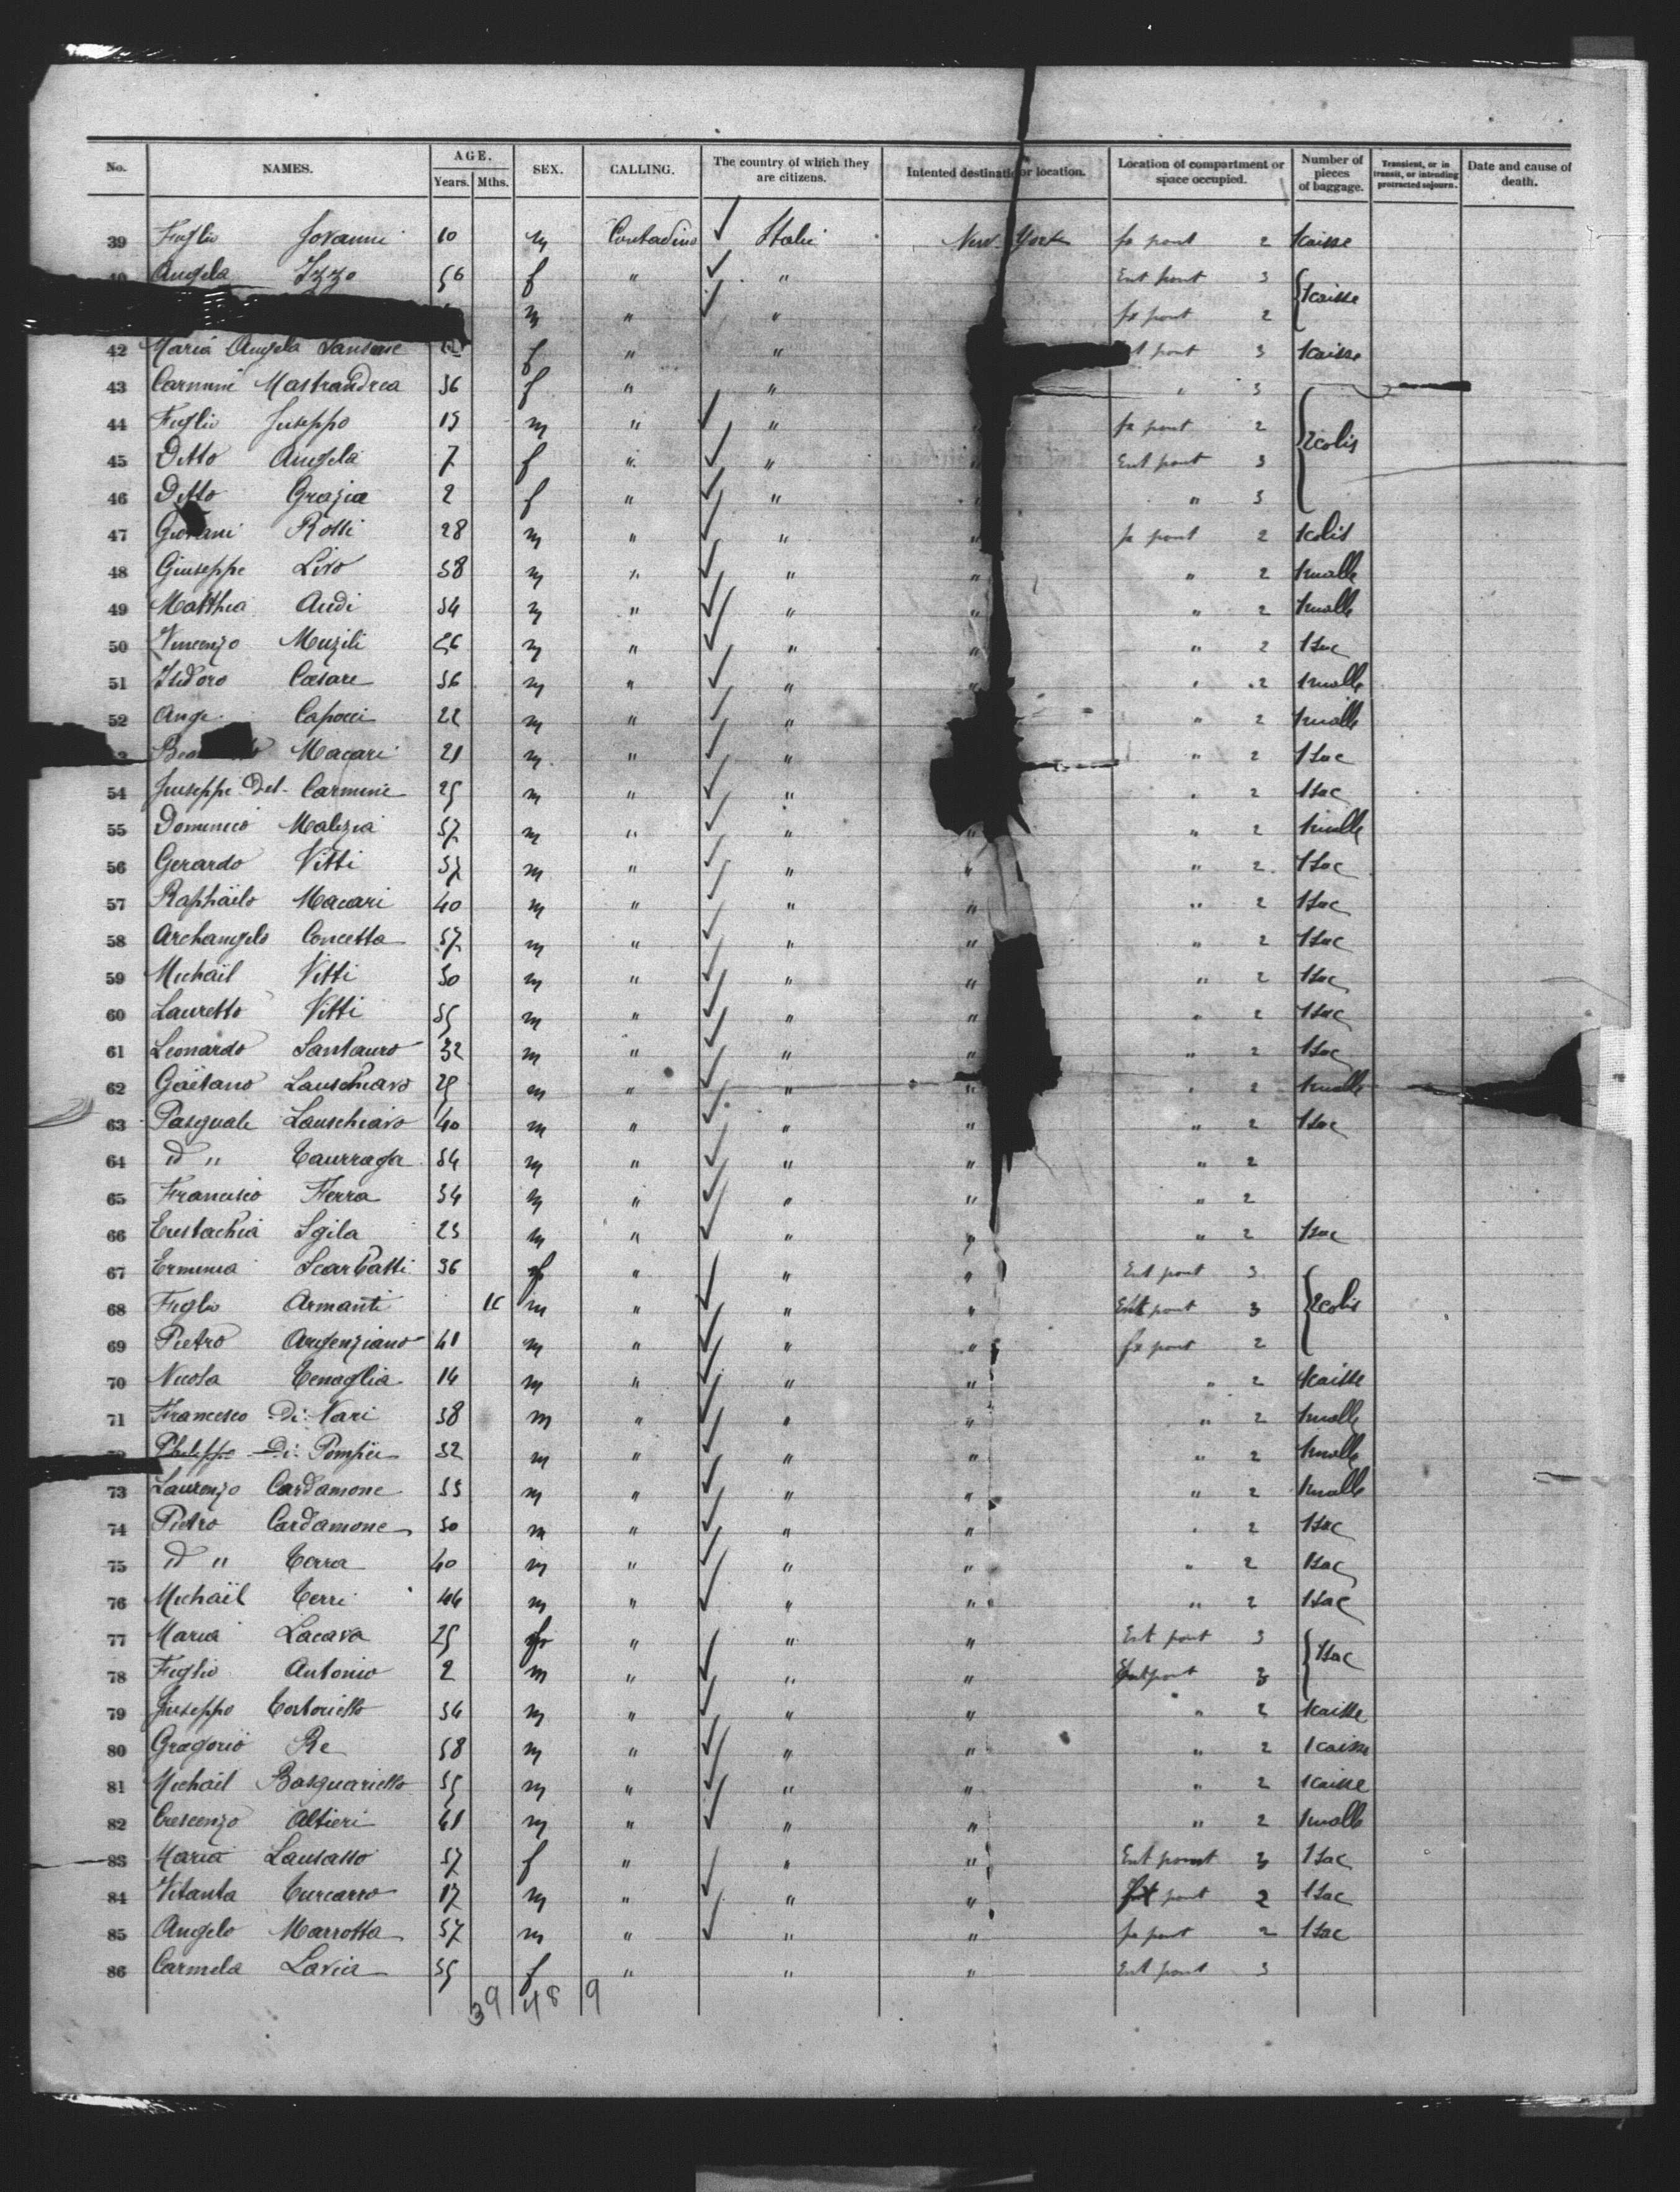 No. NAMES. AGE. Years. Mths. SEX. CALLING. The country of which they are citizens. Intented destination or location. Location of compartment or space occupied. Number of pieces of baggage. Transient, or in transit, or intending protracted sojourn. Date and cause of death.
39 Figlio Jovanni 10 m Contadino Italie New-York fx pont 2 1 caisse
Angela Izzo 56 f " " Ent pont 3 1 caisse
m " " fx pont 2
42 Maria Angela f " " pont 3 1 caisse
43 Carmini Mastrandrea 36 f " " " 3
44 Figlio Juseppo 15 m " " fx pont 2 2 colis
45 Ditto Angela 7 f " " " Ent pont 3
46 Ditto Grazia 2 f " " " " 3
47 Giovani Rossi 28 m " " " fx pont 2 1 colis
48 Giuseppe Livo 38 m " " " " 2 1 malle
49 Matthia Audi 34 m " " " " 2 1 malle
50 Vincenzo Muzili 26 m " " " " 2 1 sac
51 Isidoro Cæsare 36 m " " " " 2 1 malle
52 Ang Capocci 22 m " " " 2 1 malle
Macari 21 m " " " 2 1 sac
54 Juseppi Del Carmine 25 m " " " 2 1 sac
55 Dominico Malizia 37 m " " " " 2 1 malle
56 Gerardo Vitti 37 m " " " " 2 1 sac
57 Raphaëlo Macari 40 m " " " " 2 1 sac
58 Archangelo Concetta 37 m " " " " 2 1 sac
59 Michaïl Vitti 30 m " " " " 2 1 sac
60 Lauretto Vitti 35 m " " " " 2 1 sac
61 Leonardo Santauro 32 m " " " " 2 1 sac
62 Gaëtano Lauschiavo 25 m " " " " 2 1 malle
63 Pasquale Lauschiavo 40 m " " " " 2 1 sac
64 id " Taurraga 34 m " " " " 2
65 Francisco Ferra 34 m " " " " 2
66 Eustachia Sgila 23 m " " " " 2 1 sac
67 Erminia Scarbatti 36 f " " " Ent pont 3 2 colis
68 Figlio Armanti m " " " Ent pont 3
69 Pietro Argenziano 41 m " " " fx pont 2
70 Nicola Tenaglia 14 m " " " " 2 1 caisse
71 Francesco Di Nari 38 m " " " " 2 1 malle
Philippo Di Pompei 32 m " " " " 2 1 malle
73 Laurenzo Cardamone 33 m " " " " 2 1 malle
74 Pietro Cardamone 30 m " " " " 2 1 sac
75 id " Terra 40 m " " " " 2 1 sac
76 Michaïl Terri 44 m " " " " 2 1 sac
77 Maria Lacava 25 f " " " Ent pont 3 1 sac
78 Figlio Antonio 2 m " " " Ent pont 3
79 Juseppo Tortoriello 34 m " " " " 2 1 caisse
80 Gregorio Re 38 m " " " " 2 1 caisse
81 Michaïl Basquariello 35 m " " " " 2 1 caisse
82 Crescenzo Altieri 41 m " " " " 2 1 malle
83 Maria Lausasso 37 f " " " Ent pont 3 1 sac
84 Vitanta Curcarro 17 m " " " fx pont 2 1 sac
85 Angelo Marrotta 37 m " " " fx pont 2 1 sac
86 Carmela Lavia 35 f " " " Ent pont 3
39 48 9